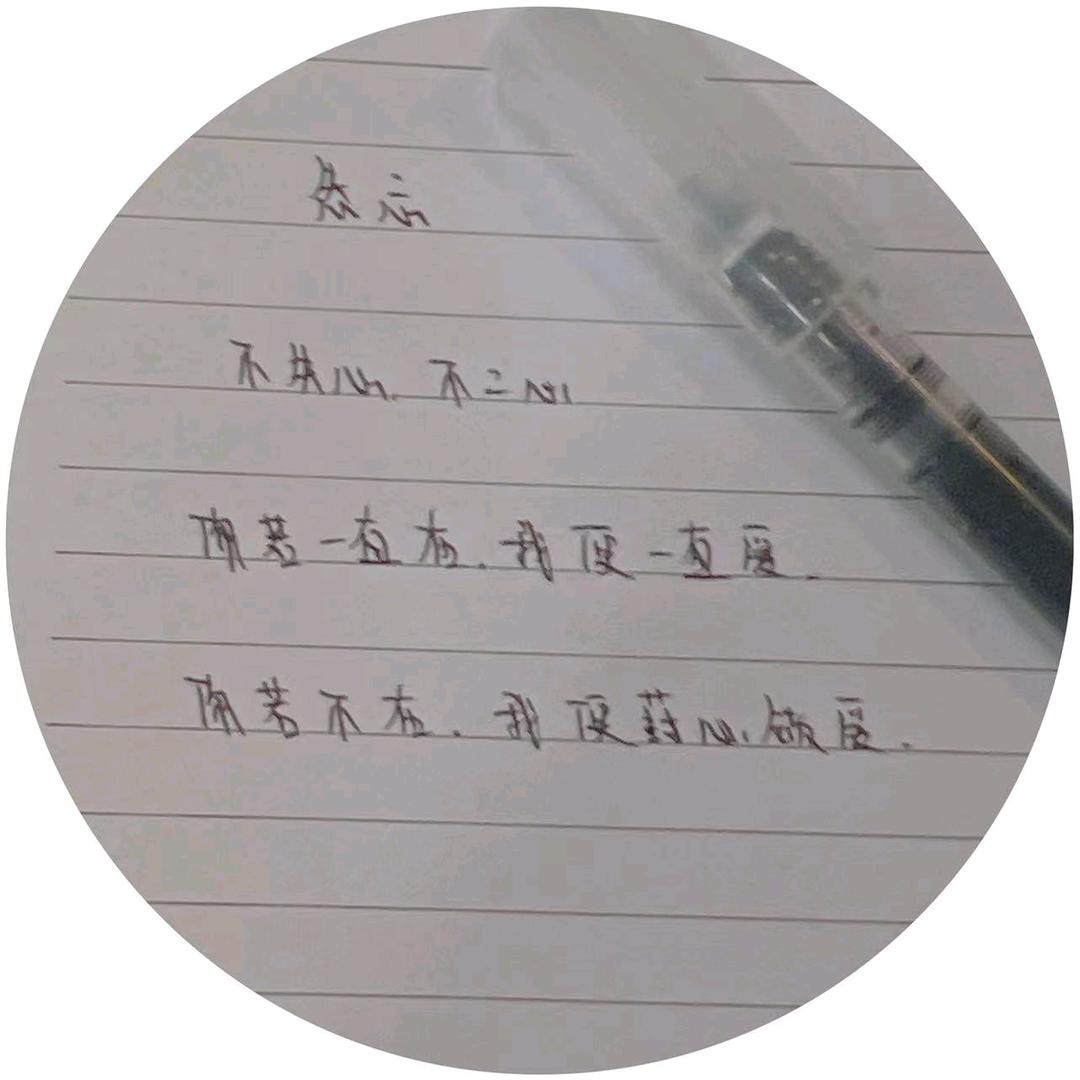 不失心.不二心
你若一直在.我便一直爱.
你若不在.我便封心锁爱.